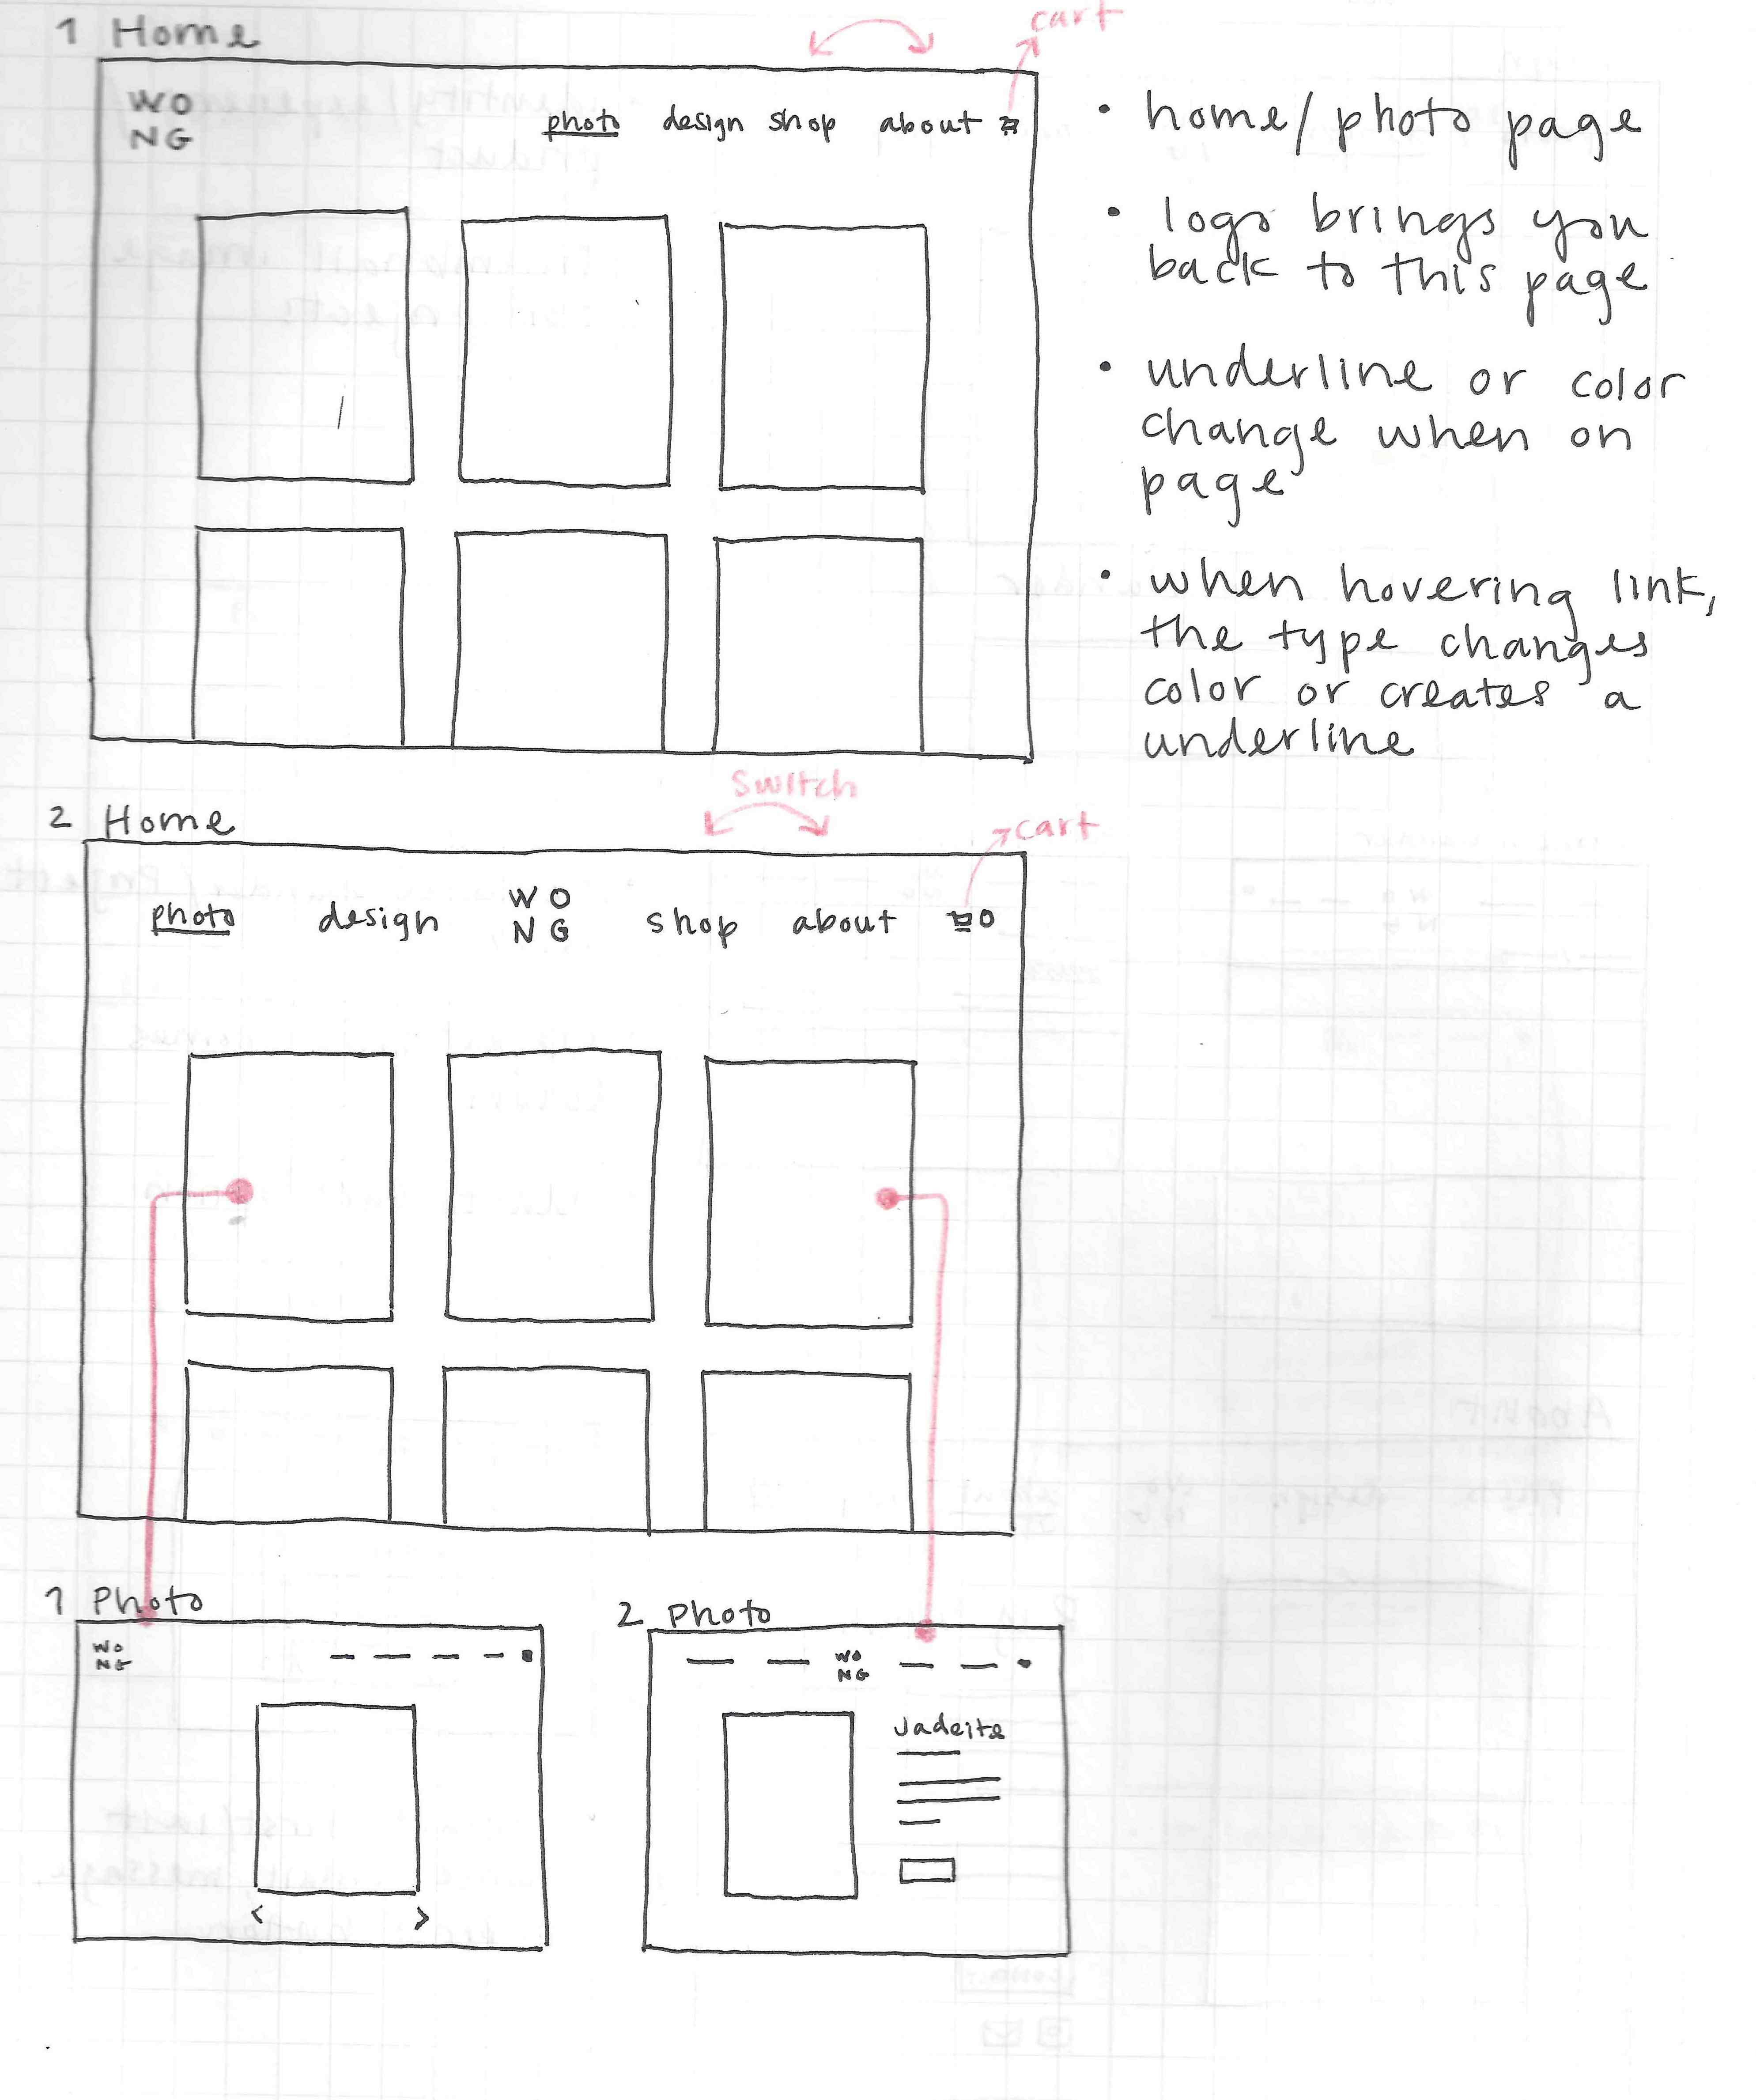 1 Home
cart
WO
NG
photo design shop about
• home/photo page
• logo brings you
back to this page
• underline or color
change when on
page
• when hovering link,
the type changes
color or creates a
underline
switch
2 Home
cart
photo design WO
NG shop about 0
1 Photo
2 Photo
WO
NG
WO
NG
Jadeite